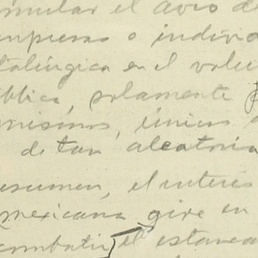 mular el avío de
mpresas o individ
talúrgica en el volu
blica, solamente p
mismos, únicos
de tan aleatoria
esumen, el interés
mexicana gire en
combatir el estanca